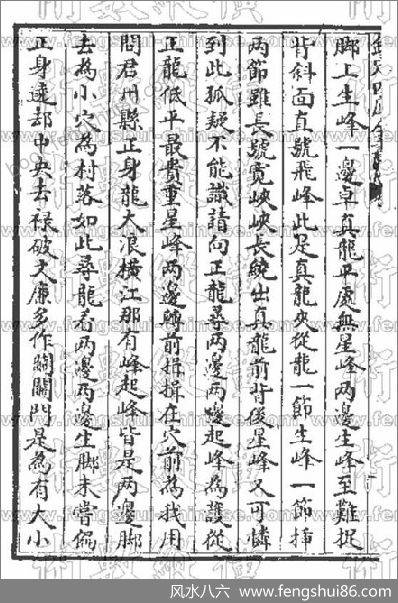 脚上生峰一邊卓真龍平處無星峰两邊生峰至難捉
背斜面直號飛峰此是真龍夾從龍一節生峰一節揷
两節雖長號寛峽峽長繞出真龍前背後星峰又可憐
到此孤疑不能識請向正龍尋两邊两邊起峰為護從
正龍低平最貴重星峰两邊轉前揖揖在穴前為我用
問君州縣正身龍大浪横江那有峰起峰皆是两邊脚
去為小穴為村落如此尋龍看两邊两邊生脚未嘗偏
正身遶却中央去禄破文廉多作關關門是為有大小
风水八六 - www.fengshui86.com